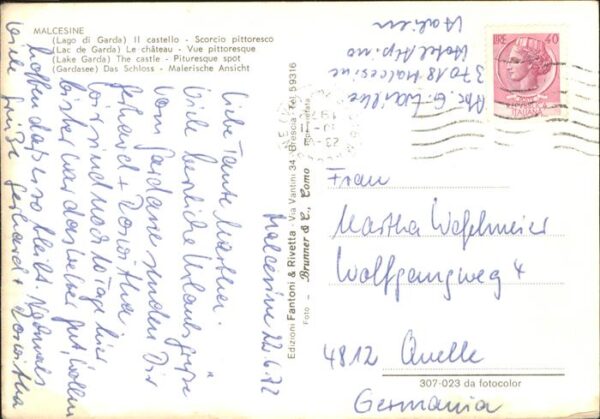 MALCESINE
(Lago di Garda) Il castello - Scorcio pittoresco
(Lac de Garda) Le château - Vue pittoresque
(Lake Garda) The castle - Pituresque spot
(Gardasee) Das Schloss - Malerische Ansicht
Malcesine 22.6.72
Liebe Tante Martha!
Viele herzliche Urlaubsgrüße
vom Gardasee senden Dir
Gerhard + Roswitha.
Wir sind noch 10 Tage hier
bisher war das Wetter gut, wollen
hoffen daß es so bleibt. Nochmals
viele Grüße Gerhard + Roswitha
Edizioni Fantoni & Rivetta - Via Vantini 34 - Brescia - Tel. 59316
Foto - Brunner & C., Como
Abs. G.
37018 Malcesine
Hotel Alpino
Italien
LIRE 40
ITALIANA
Frau
Martha
Wolfgangweg 4
4812 Quelle
Germania
307-023 da fotocolor